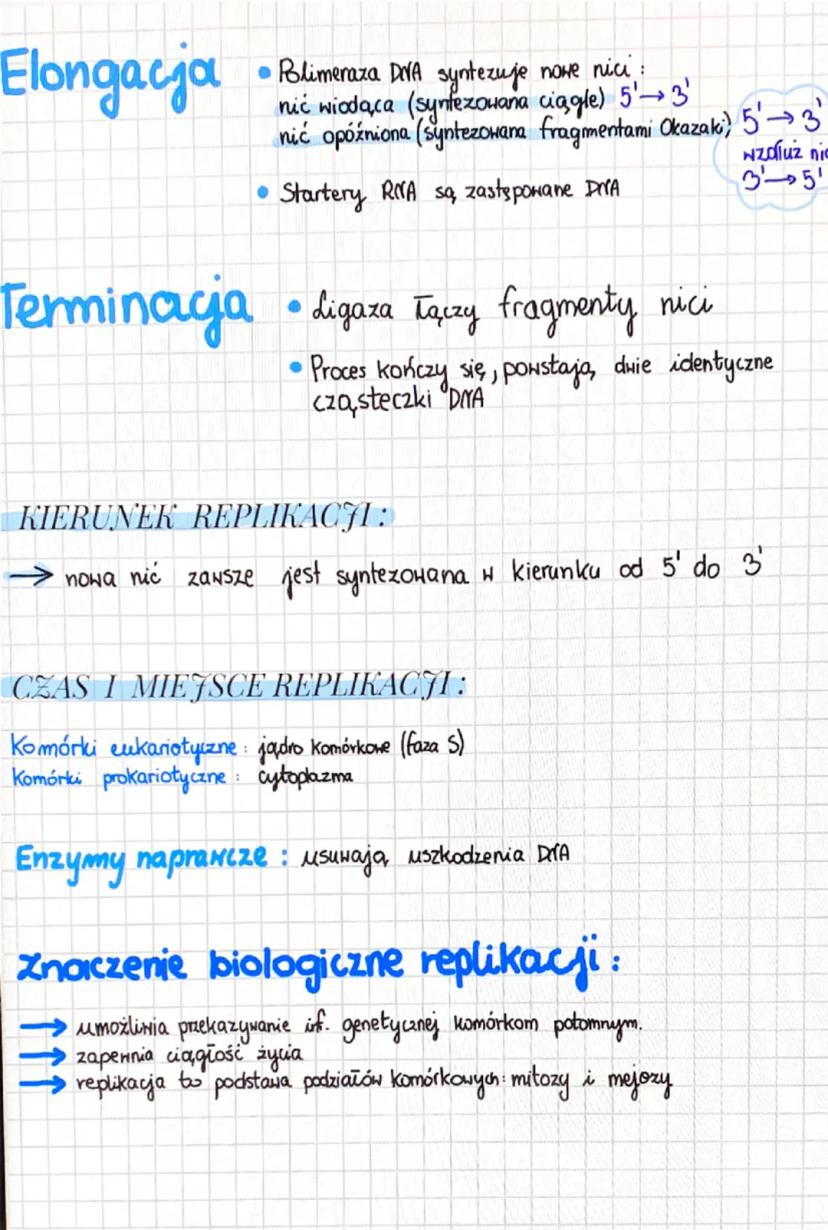 Elongacja
• Polimeraza DNA syntezuje nowe nici:
nić wiodąca (syntezowana ciągle) 5' → 3'
nić opóźniona (syntezowana fragmentami Okazaki)
5' → 3'
wzdłuż
3' → 5'
• Startery RNA są zastępowane DNA
Terminacja
• Ligaza łączy fragmenty nici
• Proces kończy się, powstają dwie identyczne
cząsteczki DNA
KIERUNEK REPLIKACJI:
→ nowa nić zawsze jest syntezowana w kierunku od 5' do 3'
CZAS I MIEJSCE REPLIKACJI:
Komórki eukariotyczne: jądro komórkowe (faza S)
Komórki prokariotyczne: cytoplazma
Enzymy naprawcze: usuwają uszkodzenia DNA
Znaczenie biologiczne replikacji:
→ umożliwia przekazywanie inf. genetycznej komórkom potomnym.
→ zapewnia ciągłość życia
→ replikacja to podstawa podziałów komórkowych: mitozy i mejozy